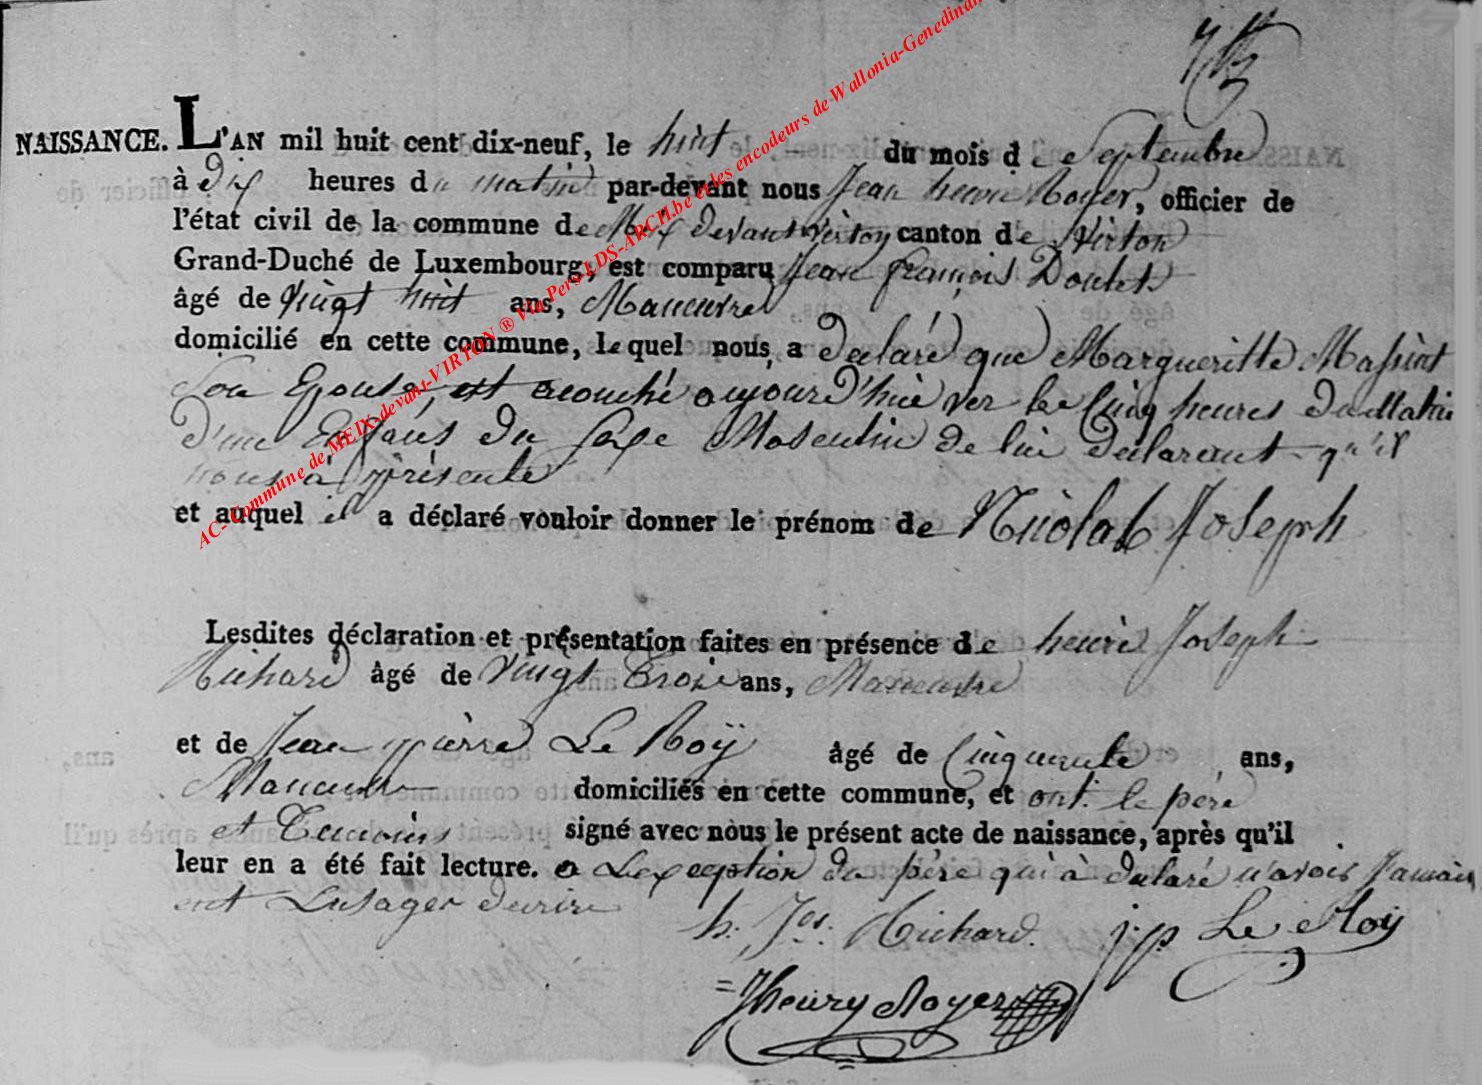 NAISSANCE. L'AN mil huit cent dix-neuf, le huit du mois de Septembre
à dix heures du matin par-devant nous Jean henri Royer, officier de
l'état civil de la commune de Meix devant virton canton de Virton
Grand-Duché de Luxembourg, est comparu Jean François
âgé de vingt huit ans, Maneuvre
domicilié en cette commune, lequel nous a dalaré que Margueritte Massint
son Epouse, est acouché aujourd'hui ver le Cinq heures du Matin
d'un Enfans du sexe Masculin de lui dalarant qu'il
nous à présenté
et auquel il a déclaré vouloir donner le prénom de Nicolas Joseph
Lesdites déclaration et présentation faites en présence de henri Joseph
Richard âgé de vingt Trois ans, Maneuvre
et de Jean pierre Le Roÿ âgé de Cinquente ans,
Maneuvre domiciliés en cette commune, et ont le père
et Temoins signé avec nous le présent acte de naissance, après qu'il
leur en a été fait lecture. a Lexception du père qui à dalaré n'avoir Jamais
Lusager
h. Jos. Richard. j: p. Le Roÿ
JHenry Royer
AC- Commune de MEIX-devant-VIRTON ® Via Pers-LDS-ARCH.be et les encodeurs de Wallonia-Genedinan